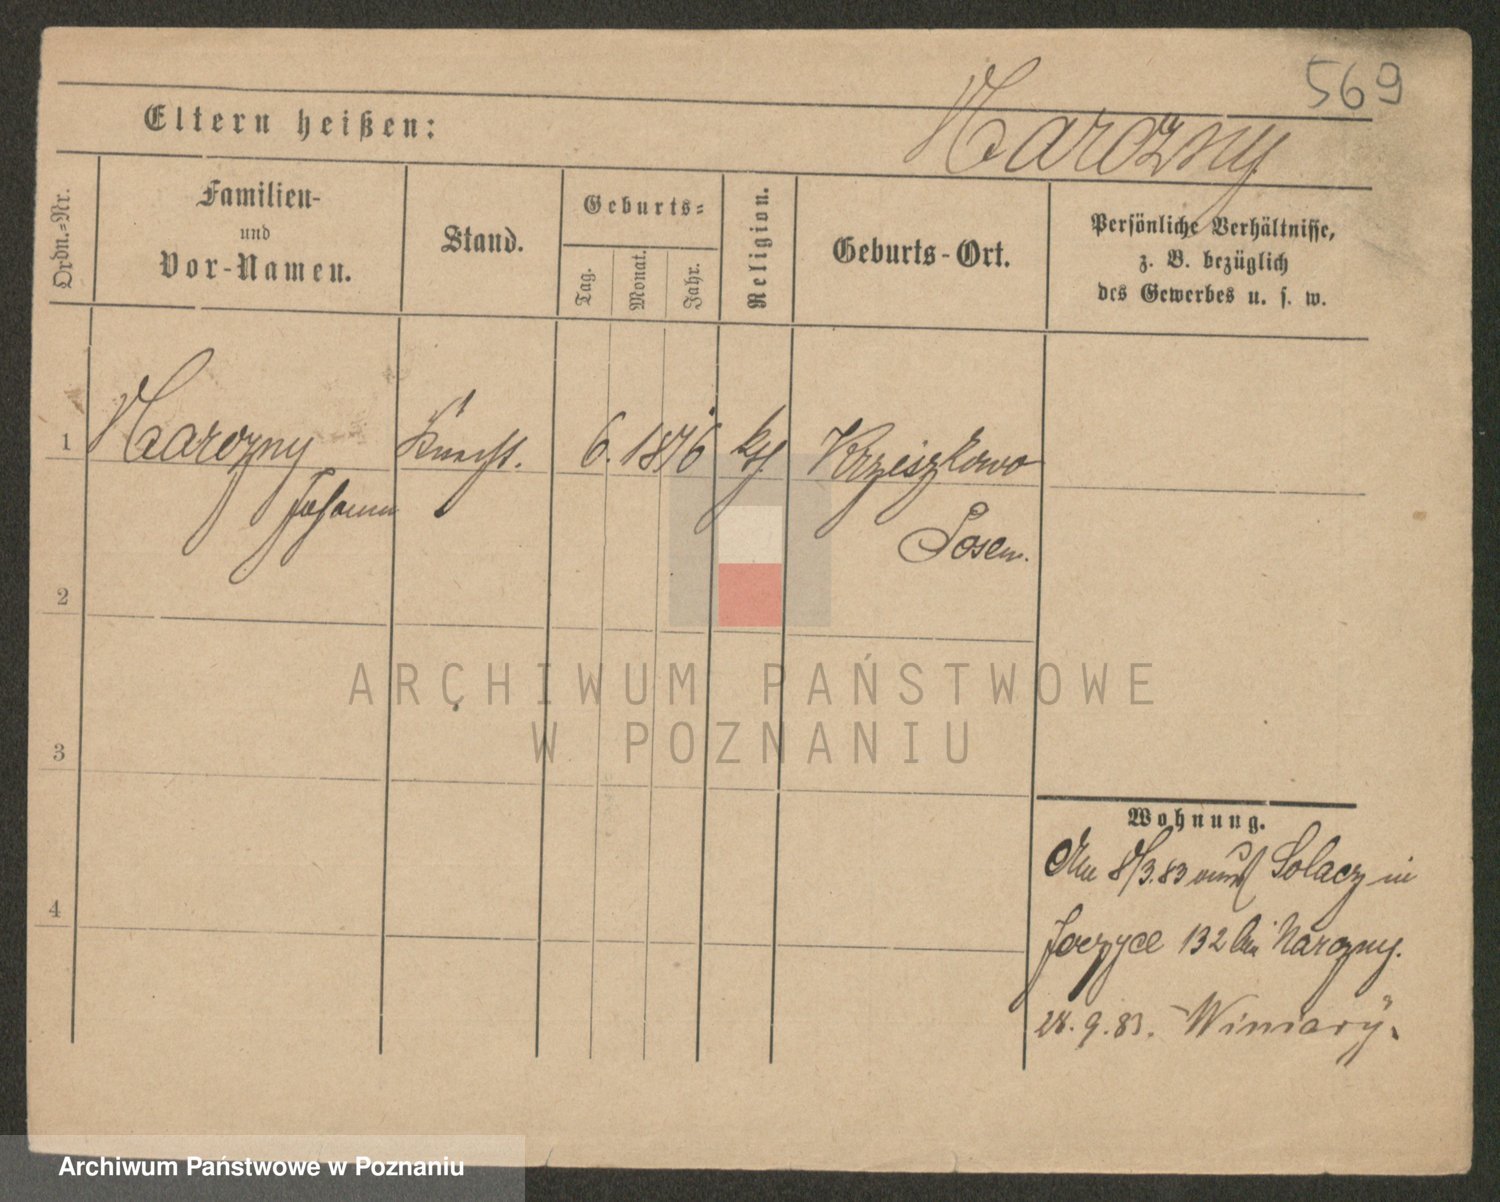 569
Eltern heißen:
Narozny
Ordn.=Nr.
Familien-
und
Vor-Namen.
Stand.
Geburts=
Tag.
Monat.
Jahr.
Religion.
Geburts-Ort.
Persönliche Verhältnisse,
z. B. bezüglich
des Gewerbes u. s. w.
1
Narozny
Johann
Knecht.
6. 1876
kth.
Krzeszkowo
Posen.
2
3
4
ARCHIWUM PAŃSTWOWE
W POZNANIU
Wohnung.
8/3.83 Solacz in
132 bei Narozny.
28. 9. 83. Winiary.
Archiwum Państwowe w Poznaniu